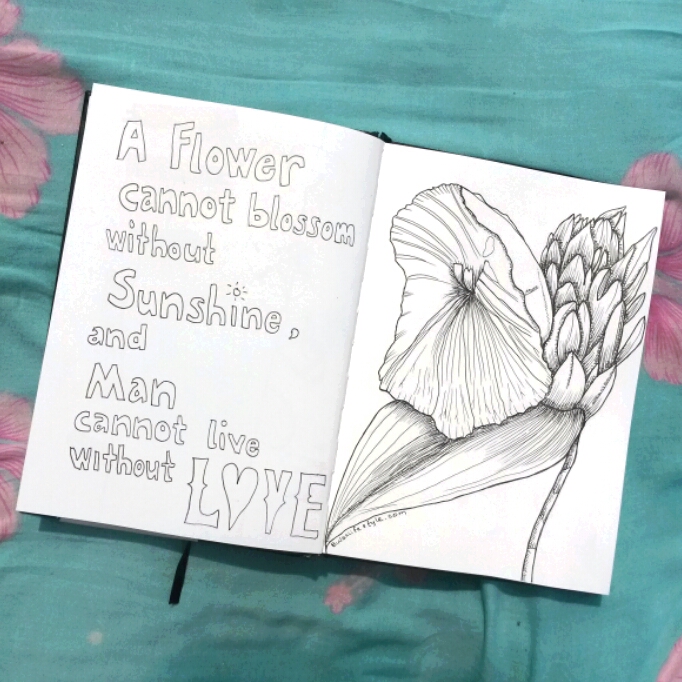 A Flower
cannot blossom
without
Sunshine,
and
Man
cannot live
without LOVE